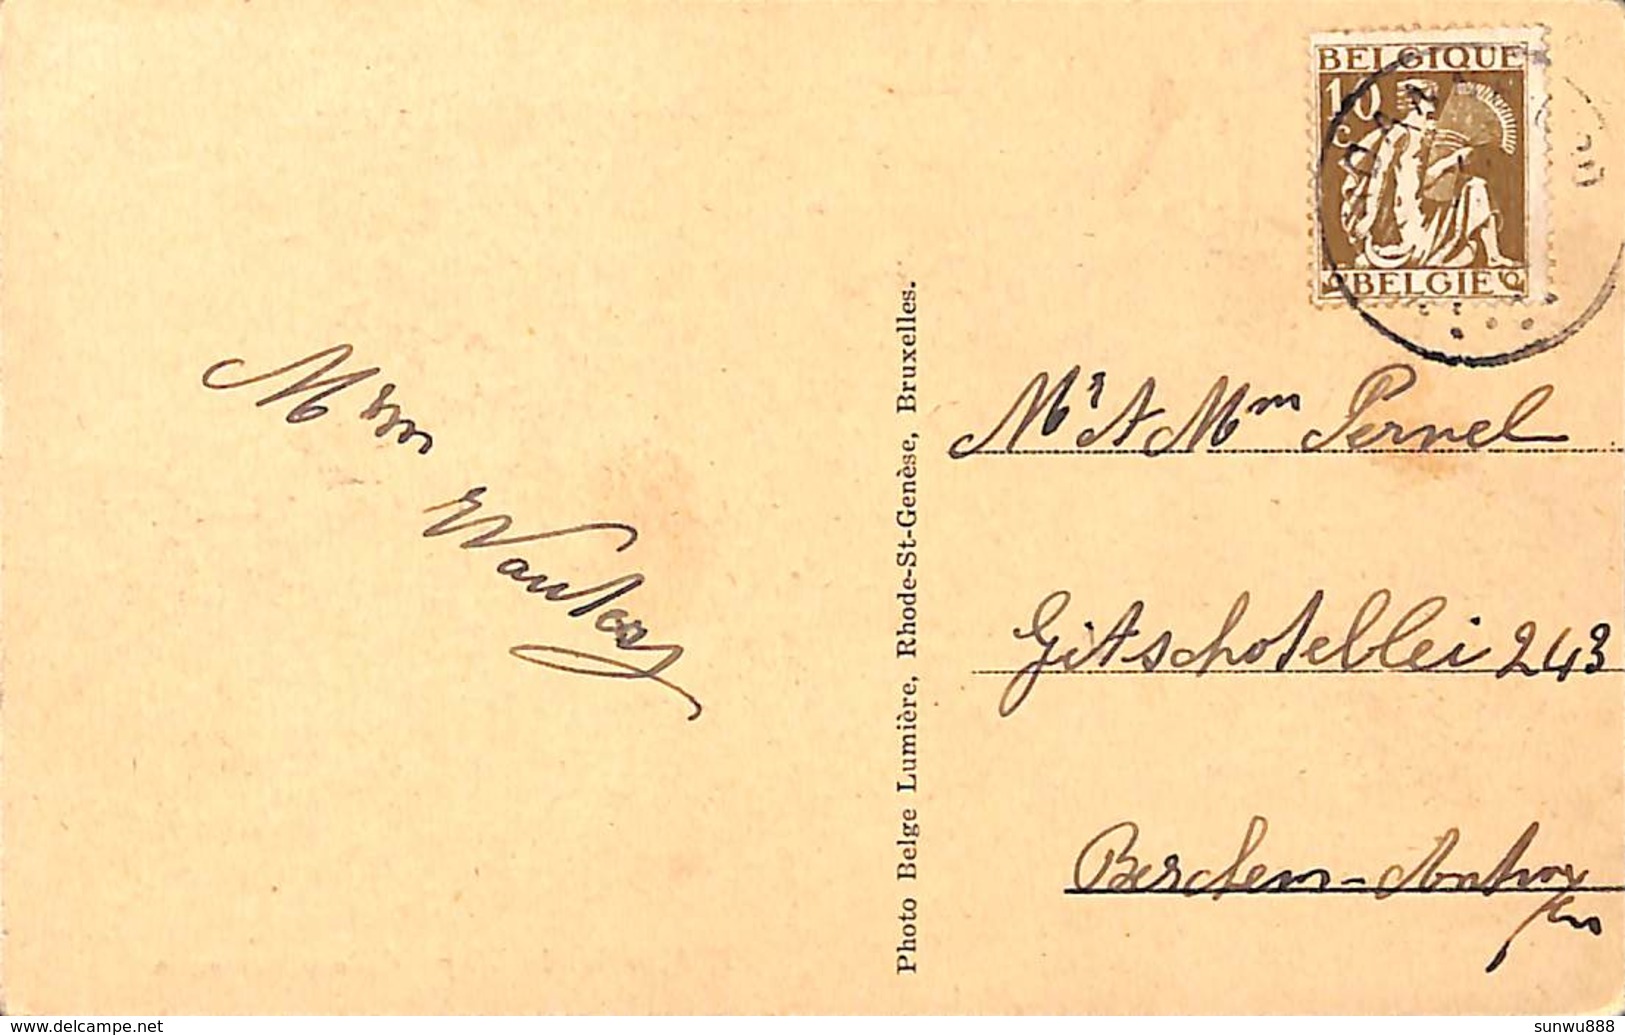 BELGIQUE
10
C
BELGIE
Mme Wauters
Photo Belge Lumière, Rhode-St-Genèse, Bruxelles.
Mr & Mm Pernel
Gitschotellei 243
Berchem-Antwer
pen
www.delcampe.net
sunwu888